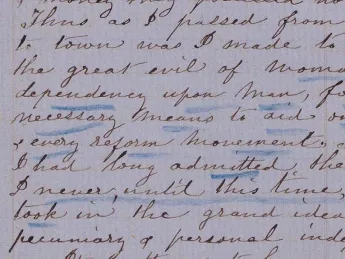 money
Thus as I passed from
to town was I made to
the great evil of woma
dependency upon man, fo
necessary means to aid
& every reform movement.
I had long admitted the
I never until this time,
took in, the grand idea
pecuniary & personal inde